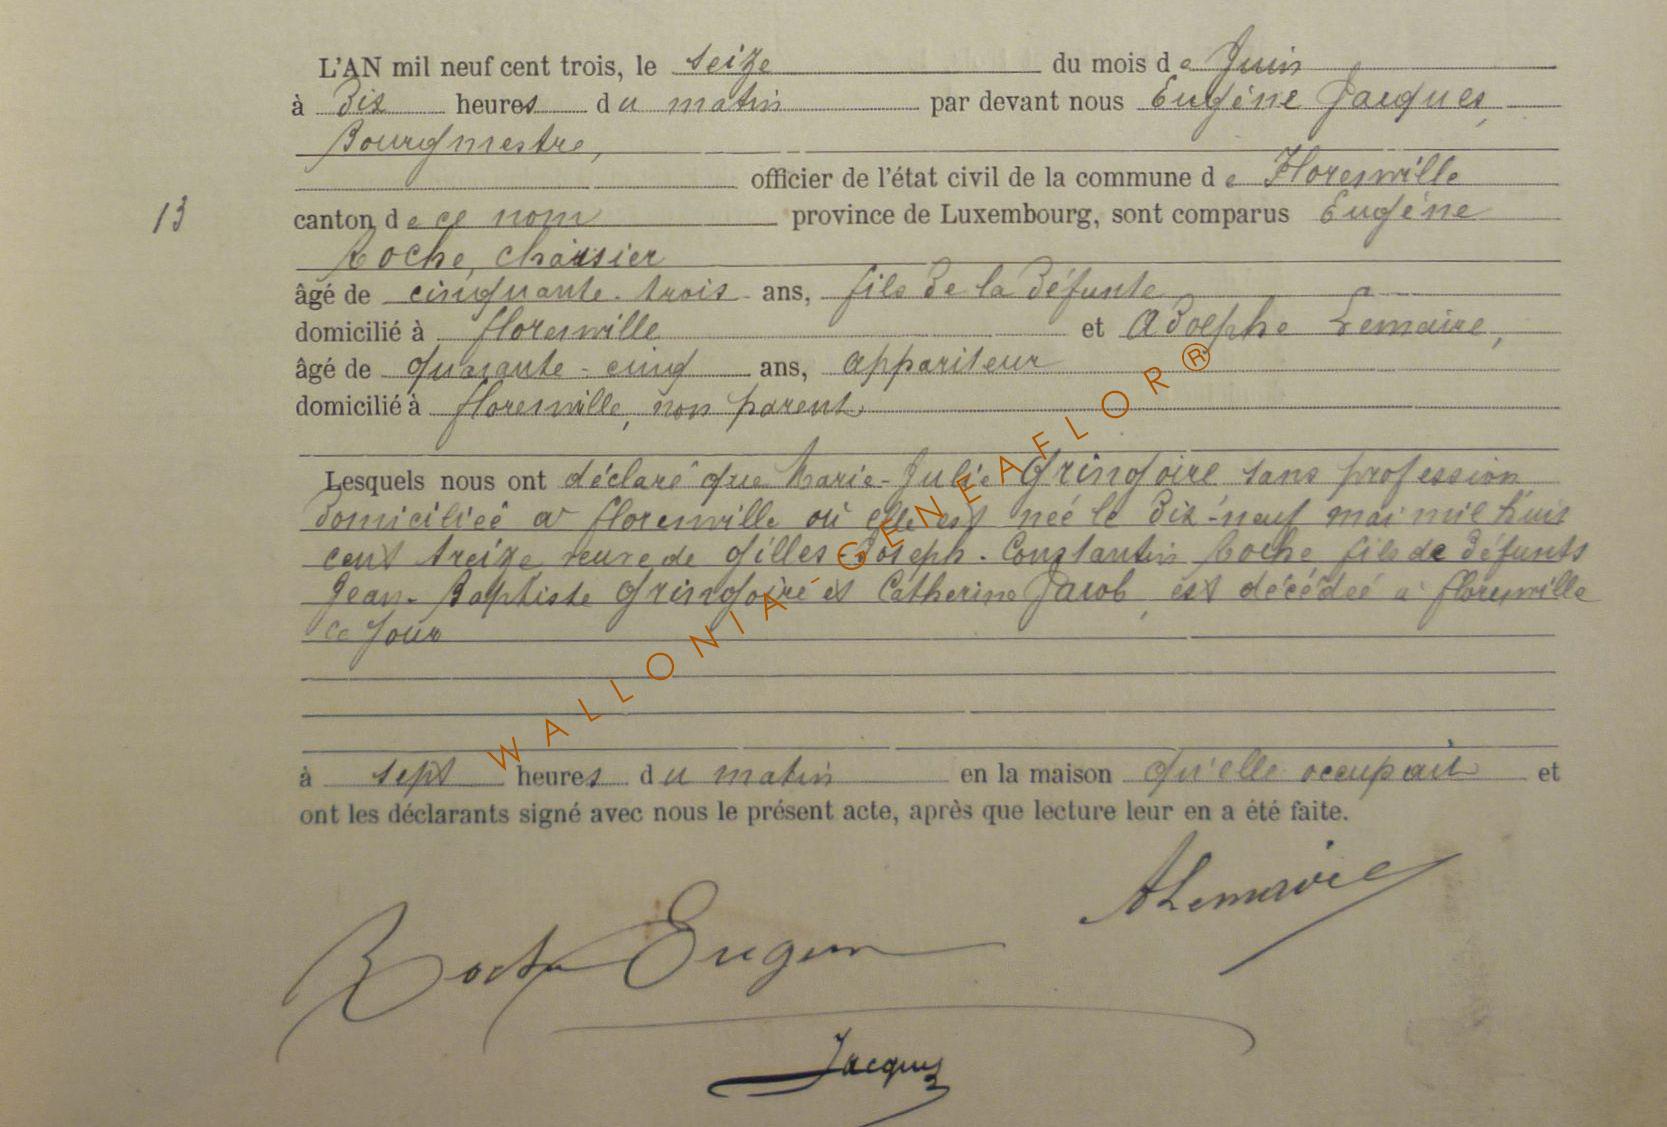 L'AN mil neuf cent trois, le seize du mois de Juin
à Dix heures du matin par devant nous Eugéne Jacques,
Bourgmestre,
officier de l'état civil de la commune de Florenville
13
canton de ce nom province de Luxembourg, sont comparus Eugéne
Roche, chaisier
âgé de cinquante-trois ans, fils de la défunte
domicilié à florenville et Adolphe Lemaire,
âgé de quarante-cinq ans, appariteur
domicilié à florenville, non parent
Lesquels nous ont déclaré que Marie-Julie Gringoire sans profession
domiciliée à florenville où elle est née le dix-neuf mai mil huit
cent treize veuve de Gilles-Joseph-Constantin Roche, fille de défunts
Jean-Baptiste Gringoire et Catherine Jacob, est décédée à florenville
ce jour
à sept heures du matin en la maison qu'elle occupait et
ont les déclarants signé avec nous le présent acte, après que lecture leur en a été faite.
ALemaire
Roche Eugene
Jacques
WALLONIA-GENEAFLOR®